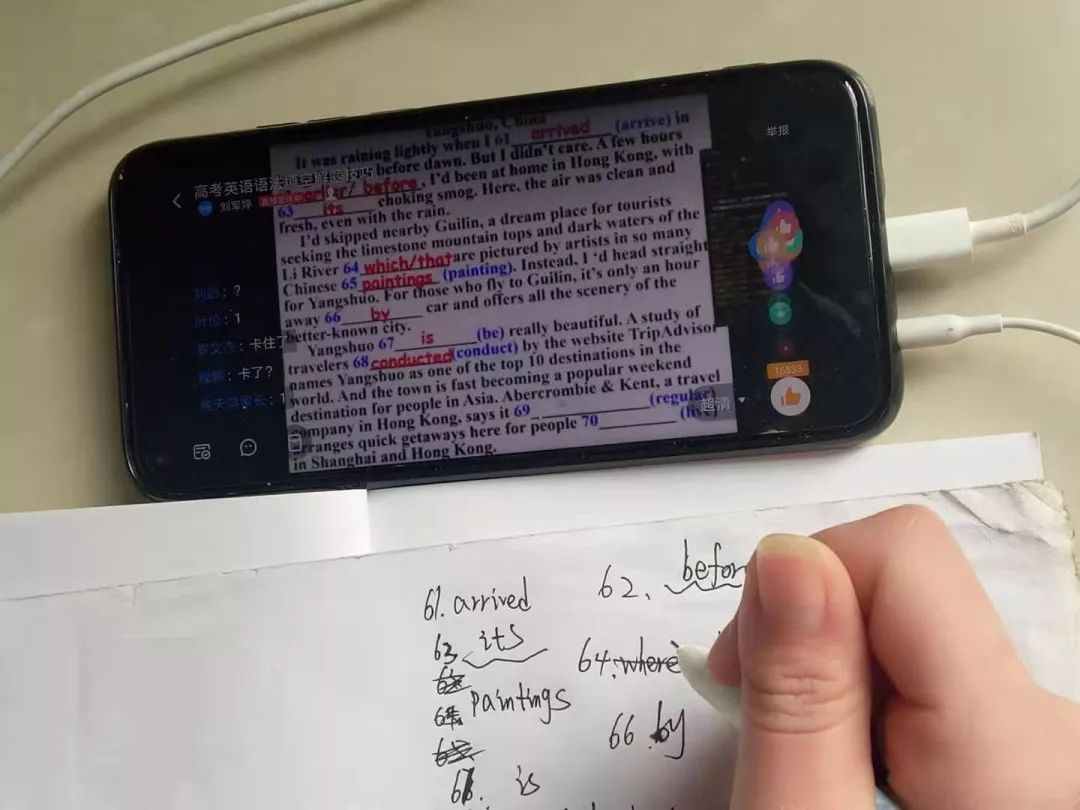 Yangshuo, China
It was raining lightly when I 61 arrived (arrive) in
before dawn. But I didn't care. A few hours
before, I'd been at home in Hong Kong, with
63 its choking smog. Here, the air was clean and
fresh, even with the rain.
I'd skipped nearby Guilin, a dream place for tourists
seeking the limestone mountain tops and dark waters of the
Li River 64 which/that are pictured by artists in so many
Chinese 65 paintings (painting). Instead, I'd head straight
for Yangshuo. For those who fly to Guilin, it's only an hour
away 66 by car and offers all the scenery of the
better-known city.
Yangshuo 67 is (be) really beautiful. A study of
travelers 68 conducted (conduct) by the website TripAdvisor
names Yangshuo as one of the top 10 destinations in the
world. And the town is fast becoming a popular weekend
destination for people in Asia. Abercrombie & Kent, a travel
company in Hong Kong, says it 69 (regular)
arranges quick getaways here for people 70 (live)
in Shanghai and Hong Kong.
高考英语语法填空解题技巧
刘军婷
举报
：?
：1
：卡住了
：卡了?
超清
16533
61. arrived 62. befor
63 its 64. where
Paintings
66 by
is